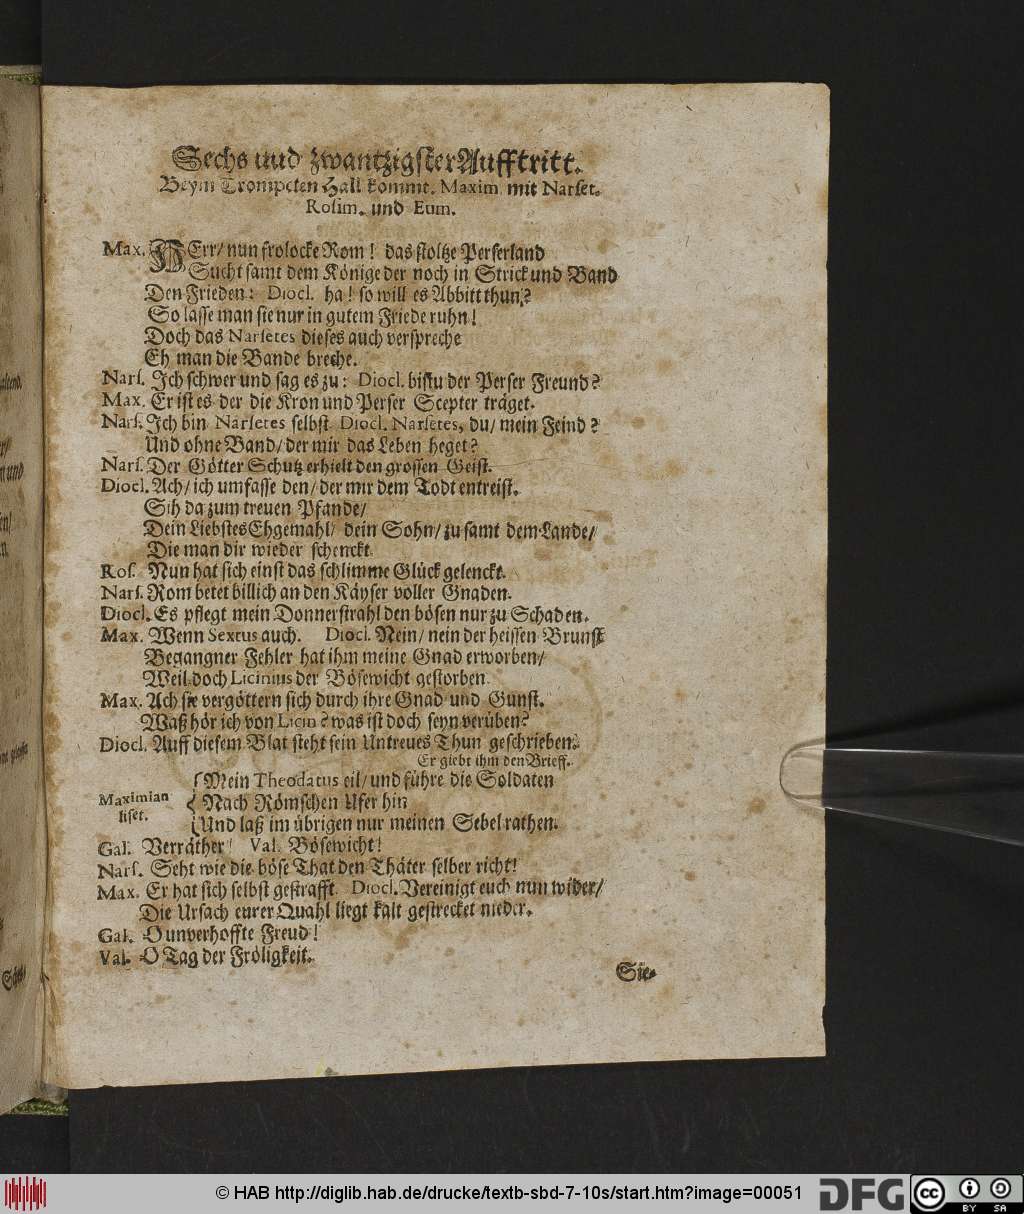 Sechs und zwantzigster Aufftritt.
Beym Trompeten Hall kommt. Maxim. mit Narset.
Rosim. und Eum.
Max. HErr/ nun frolocke Rom! das stoltze Perserland
Sucht samt dem Könige der noch in Strick und Band
Den Frieden: Diocl. ha! so will es Abbitt thun?
So lasse man sie nur in gutem Friede ruhn!
Doch das Narsetes dieses auch verspreche
Eh man die Bande breche.
Nars. Ich schwer und sag es zu: Diocl. bistu der Perser Freund?
Max. Er ist es der die Kron und Perser Scepter träget.
Nars. Ich bin Narsetes selbst Diocl. Narsetes, du/ mein Feind?
Und ohne Band/ der mir das Leben heget?
Nars. Der Götter Schutz erhielt den grossen Geist.
Diocl. Ach/ ich umfasse den/ der mir dem Todt entreist.
Sih da zum treuen Pfande/
Dein Liebstes Ehgemahl/ dein Sohn/ zu samt dem Lande/
Die man dir wieder schenckt.
Ros. Nun hat sich einst das schlimme Glück gelenckt.
Nars. Rom betet billich an den Käyser voller Gnaden.
Diocl. Es pflegt mein Donnerstrahl den bösen nur zu Schaden.
Max. Wenn Sextus auch. Diocl. Nein/ nein der heissen Brunst
Begangner Fehler hat ihm meine Gnad erworben/
Weil doch Licinius der Bösewicht gestorben.
Max. Ach sie vergöttern sich durch ihre Gnad und Gunst.
Waß hör ich von Licin? was ist doch seyn verüben?
Diocl. Auff diesem Blat steht sein Untreues Thun geschrieben.
Er giebt ihm den Brieff.
Mein Theodatus eil/ und führe die Soldaten
Maximian liset. Nach Römschen Ufer hin
Und laß im übrigen nur meinen Sebel rathen.
Gal. Verräther! Val. Bösewicht!
Nars. Seht wie die böse That den Thäter selber richt!
Max. Er hat sich selbst gestrafft. Diocl. Vereinigt euch nun wider/
Die Ursach eurer Quahl liegt kalt gestrecket nieder.
Gal. O unverhoffte Freud!
Val. O Tag der Fröligkeit.
Sie-
© HAB http://diglib.hab.de/drucke/textb-sbd-7-10s/start.htm?image=00051
DFG
cc BY SA